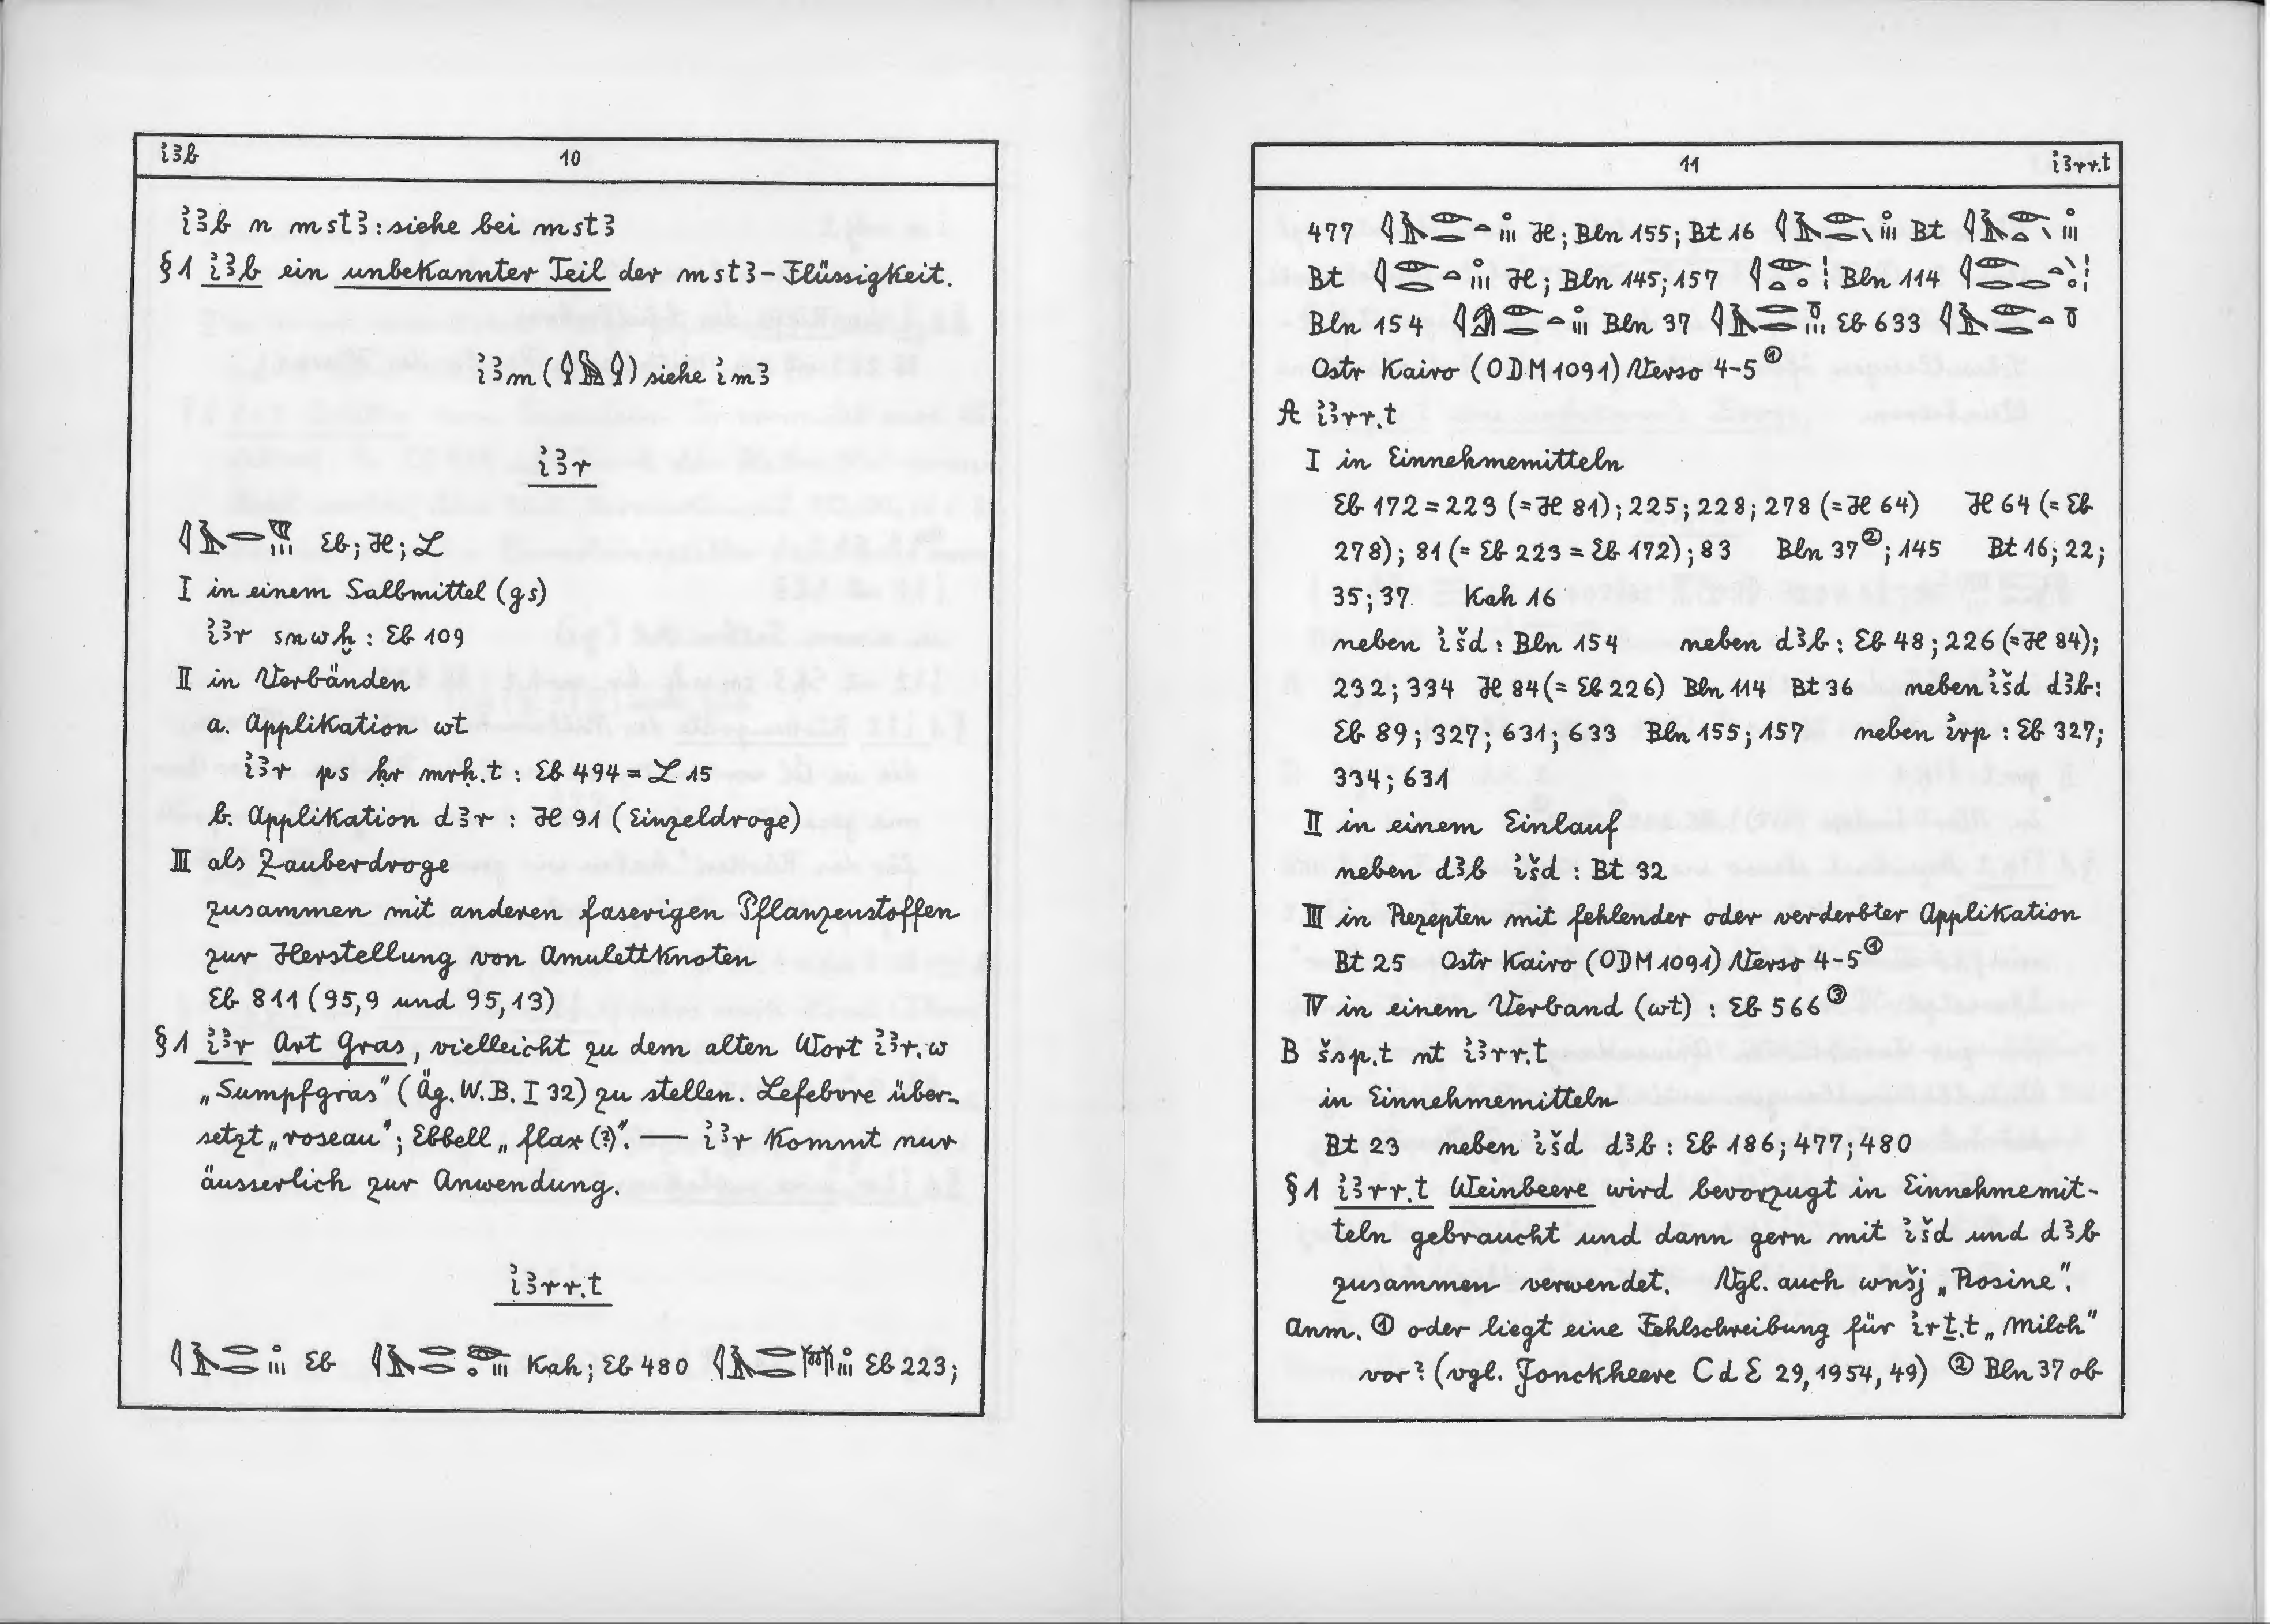 ı͗ꜣb 10
ı͗ꜣb n mstꜣ: siehe bei mstꜣ
§1 ı͗ꜣb ein unbekannter Teil der mstꜣ-Flüssigkeit.
ı͗ꜣm ( ) siehe ı͗mꜣ
ı͗ꜣr
Eb; H; L
I in einem Salbmittel (gs)
ı͗ꜣr snwḫ : Eb 109
II in Verbänden
a. Applikation wt
ı͗ꜣr ps ḥr mrḥ.t : Eb 494 = L 15
b. Applikation dꜣr : H 91 (Einzeldroge)
III als Zauberdroge
zusammen mit anderen faserigen Pflanzenstoffen
zur Herstellung von Amulettknoten
Eb 811 (95,9 und 95,13)
§1 ı͗ꜣr Art Gras, vielleicht zu dem alten Wort ı͗ꜣr.w
„Sumpfgras" (Äg. W.B. I 32) zu stellen. Lefebvre über-
setzt „roseau"; Ebbell „flax (?)". — ı͗ꜣr kommt nur
äusserlich zur Anwendung.
ı͗ꜣrr.t
Eb Kah; Eb 480 Eb 223;
11 ı͗ꜣrr.t
477 H; Bln 155; Bt 16 Bt
Bt H; Bln 145; 157 Bln 114
Bln 154 Bln 37 Eb 633
Ostr Kairo (ODM 1091) Verso 4-5①
A ı͗ꜣrr.t
I in Einnehmemitteln
Eb 172 = 223 (= H 81); 225; 228; 278 (= H 64) H 64 (= Eb
278); 81 (= Eb 223 = Eb 172); 83 Bln 37②; 145 Bt 16; 22;
35; 37 Kah 16
neben ı͗šd : Bln 154 neben dꜣb : Eb 48; 226 (= H 84);
232; 334 H 84 (= Eb 226) Bln 114 Bt 36 neben ı͗šd dꜣb:
Eb 89; 327; 631; 633 Bln 155; 157 neben ı͗rp : Eb 327;
334; 631
II in einem Einlauf
neben dꜣb ı͗šd : Bt 32
III in Rezepten mit fehlender oder verderbter Applikation
Bt 25 Ostr Kairo (ODM 1091) Verso 4-5①
IV in einem Verband (wt) : Eb 566③
B šsp.t nt ı͗ꜣrr.t
in Einnehmemitteln
Bt 23 neben ı͗šd dꜣb : Eb 186; 477; 480
§1 ı͗ꜣrr.t Weinbeere wird bevorzugt in Einnehmemit-
teln gebraucht und dann gern mit ı͗šd und dꜣb
zusammen verwendet. Vgl. auch wnšj „Rosine".
Anm. ① oder liegt eine Fehlschreibung für ı͗rṯ.t „Milch"
vor? (vgl. Jonckheere CdE 29, 1954, 49) ② Bln 37 ob